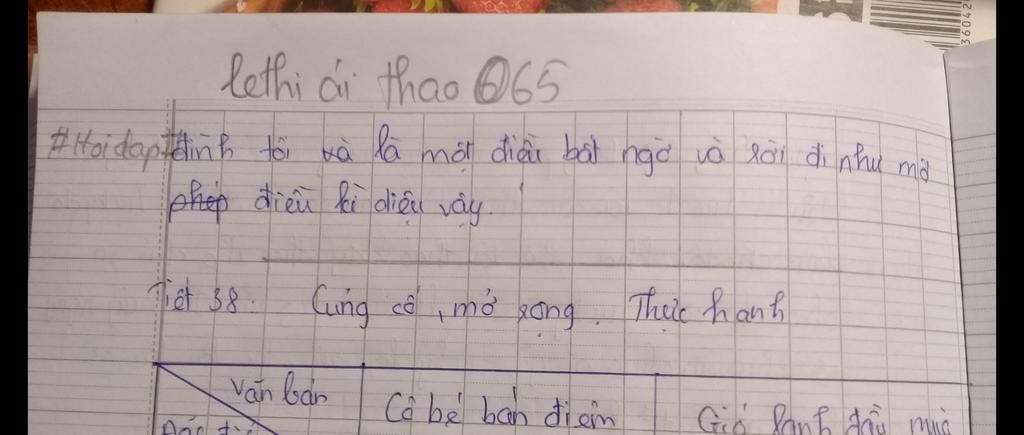 360420
lethi ái thao 065
#Hoidap đình tôi và là một điều bất ngờ và rời đi như một
phép điều kì diệu vậy.
Tiết 38. Củng cố, mở rộng. Thực hành
Văn bản
Cô bé bán diêm
Gió lạnh đầu mùa